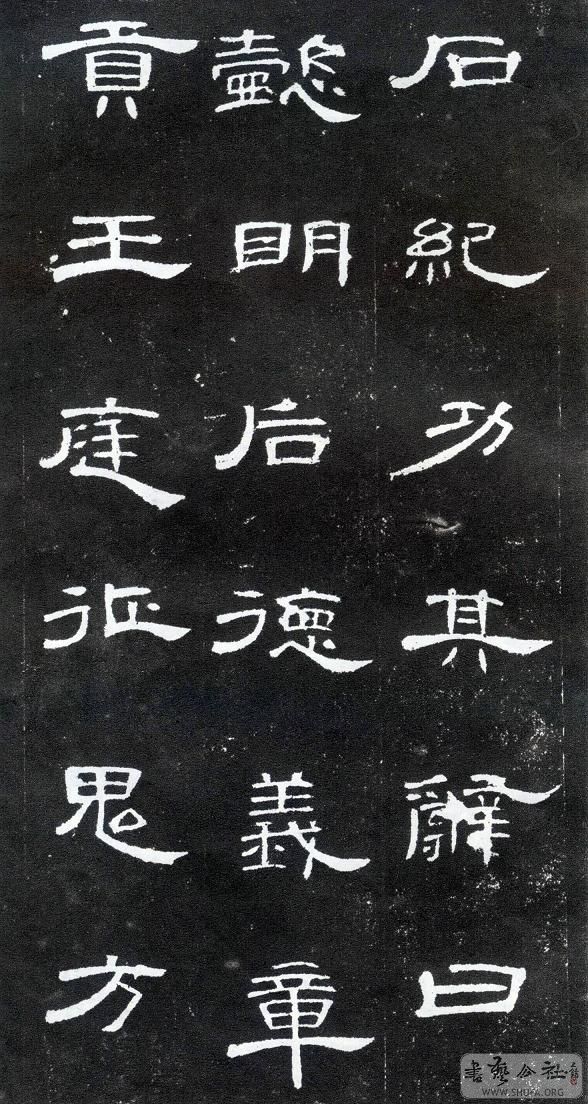 石紀功其辭曰
懿明后德義章
貢王庭征鬼方
書藝公社
WWW.SHUFA.ORG